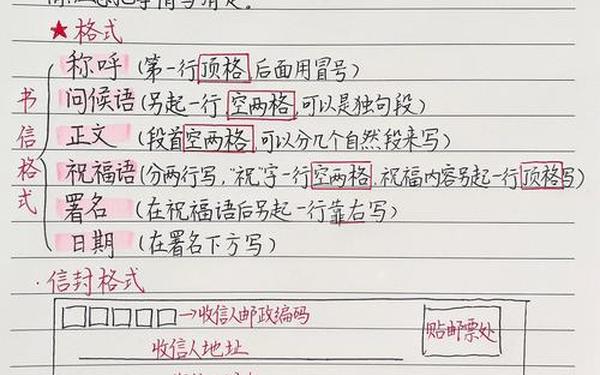 ★格式
称呼(第一行顶格,后面用冒号)
问候语(另起一行,空两格,可以是独句段)
正文(段首空两格,可以分几个自然段来写)
祝福语(分两行写,“祝”字一行空两格,祝福内容另起一行顶格写)
署名(在祝福语后另起一行靠右写)
日期(在署名下方写)
书信格式
·信封格式
→收信人邮政编码
贴邮票处
收信人地址